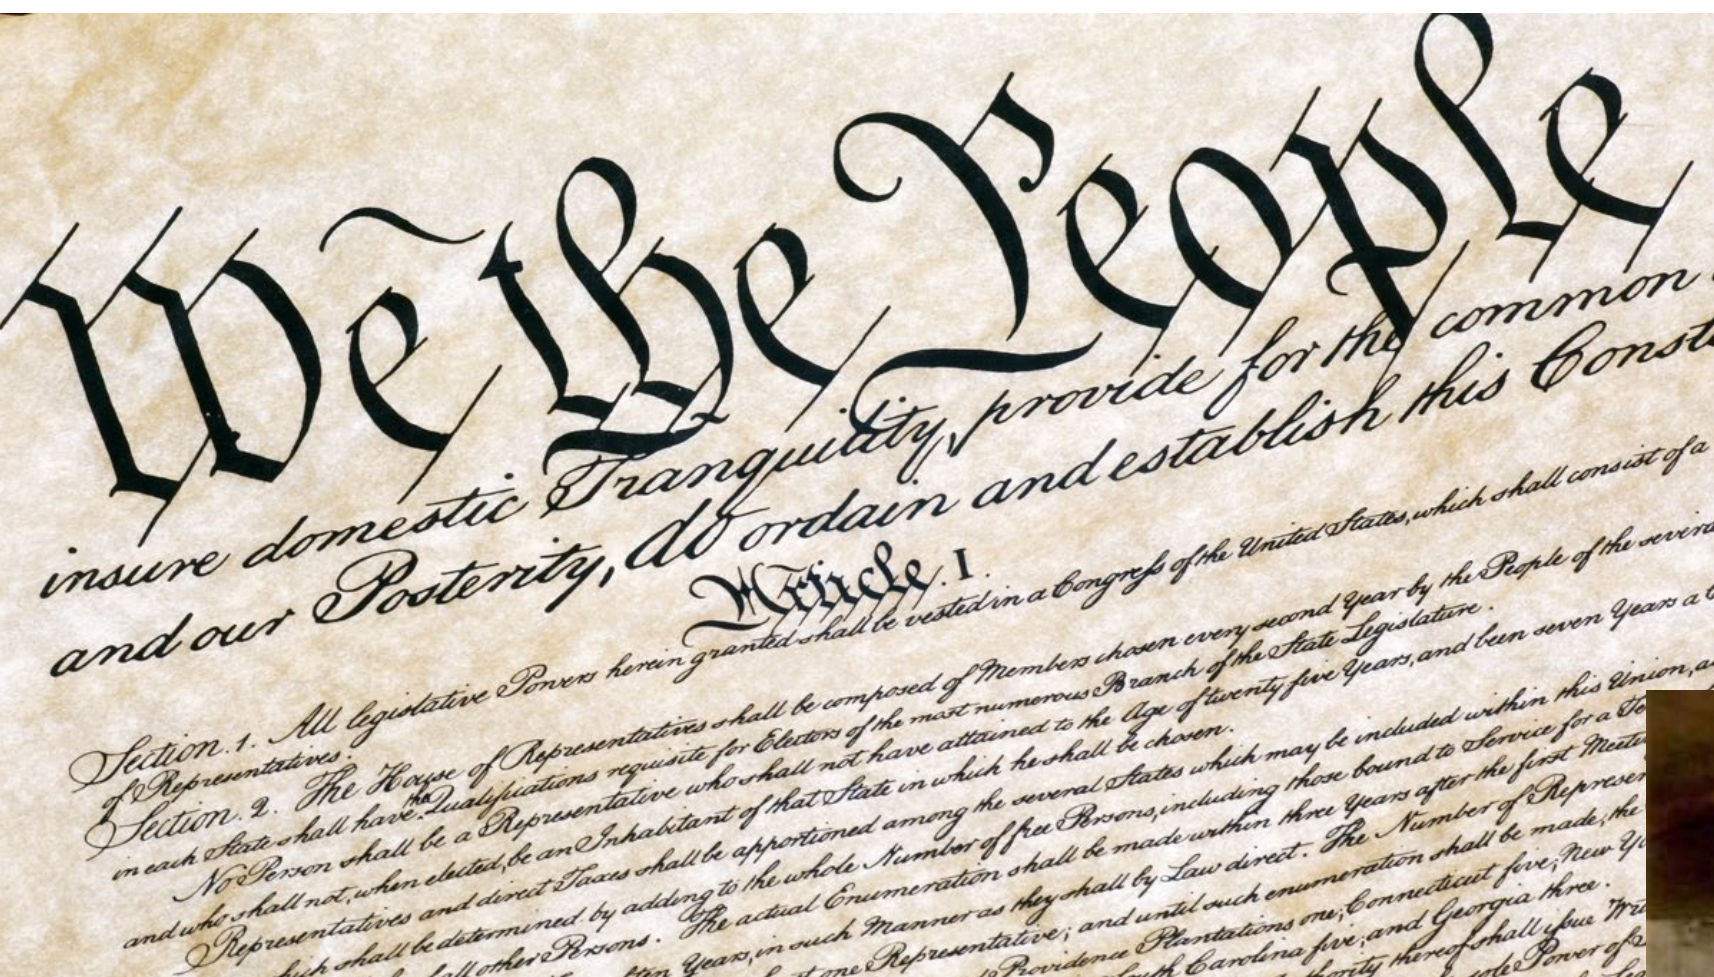 We the People
insure domestic Tranquility, provide for the common
and our Posterity, do ordain and establish this Const
Article. I.
Section. 1. All legislative Powers herein granted shall be vested in a Congress of the United States, which shall consist of a
of Representatives.
Section. 2. The House of Representatives shall be composed of Members chosen every second Year by the People of the severa
in each State shall have the Qualifications requisite for Electors of the most numerous Branch of the State Legislature.
No Person shall be a Representative who shall not have attained to the Age of twenty five Years, and been seven Years a
and who shall not, when elected, be an Inhabitant of that State in which he shall be chosen.
Representatives and direct Taxes shall be apportioned among the several States which may be included within this Union, a
shall be determined by adding to the whole Number of free Persons, including those bound to Service for a Te
all other Persons. The actual Enumeration shall be made within three Years after the first Meeti
ten Years, in such Manner as they shall by Law direct. The Number of Represen
one Representative; and until such enumeration shall be made, the
Providence Plantations one, Connecticut five, New Yo
Carolina five, and Georgia three.
thereof shall issue Wri
Power of